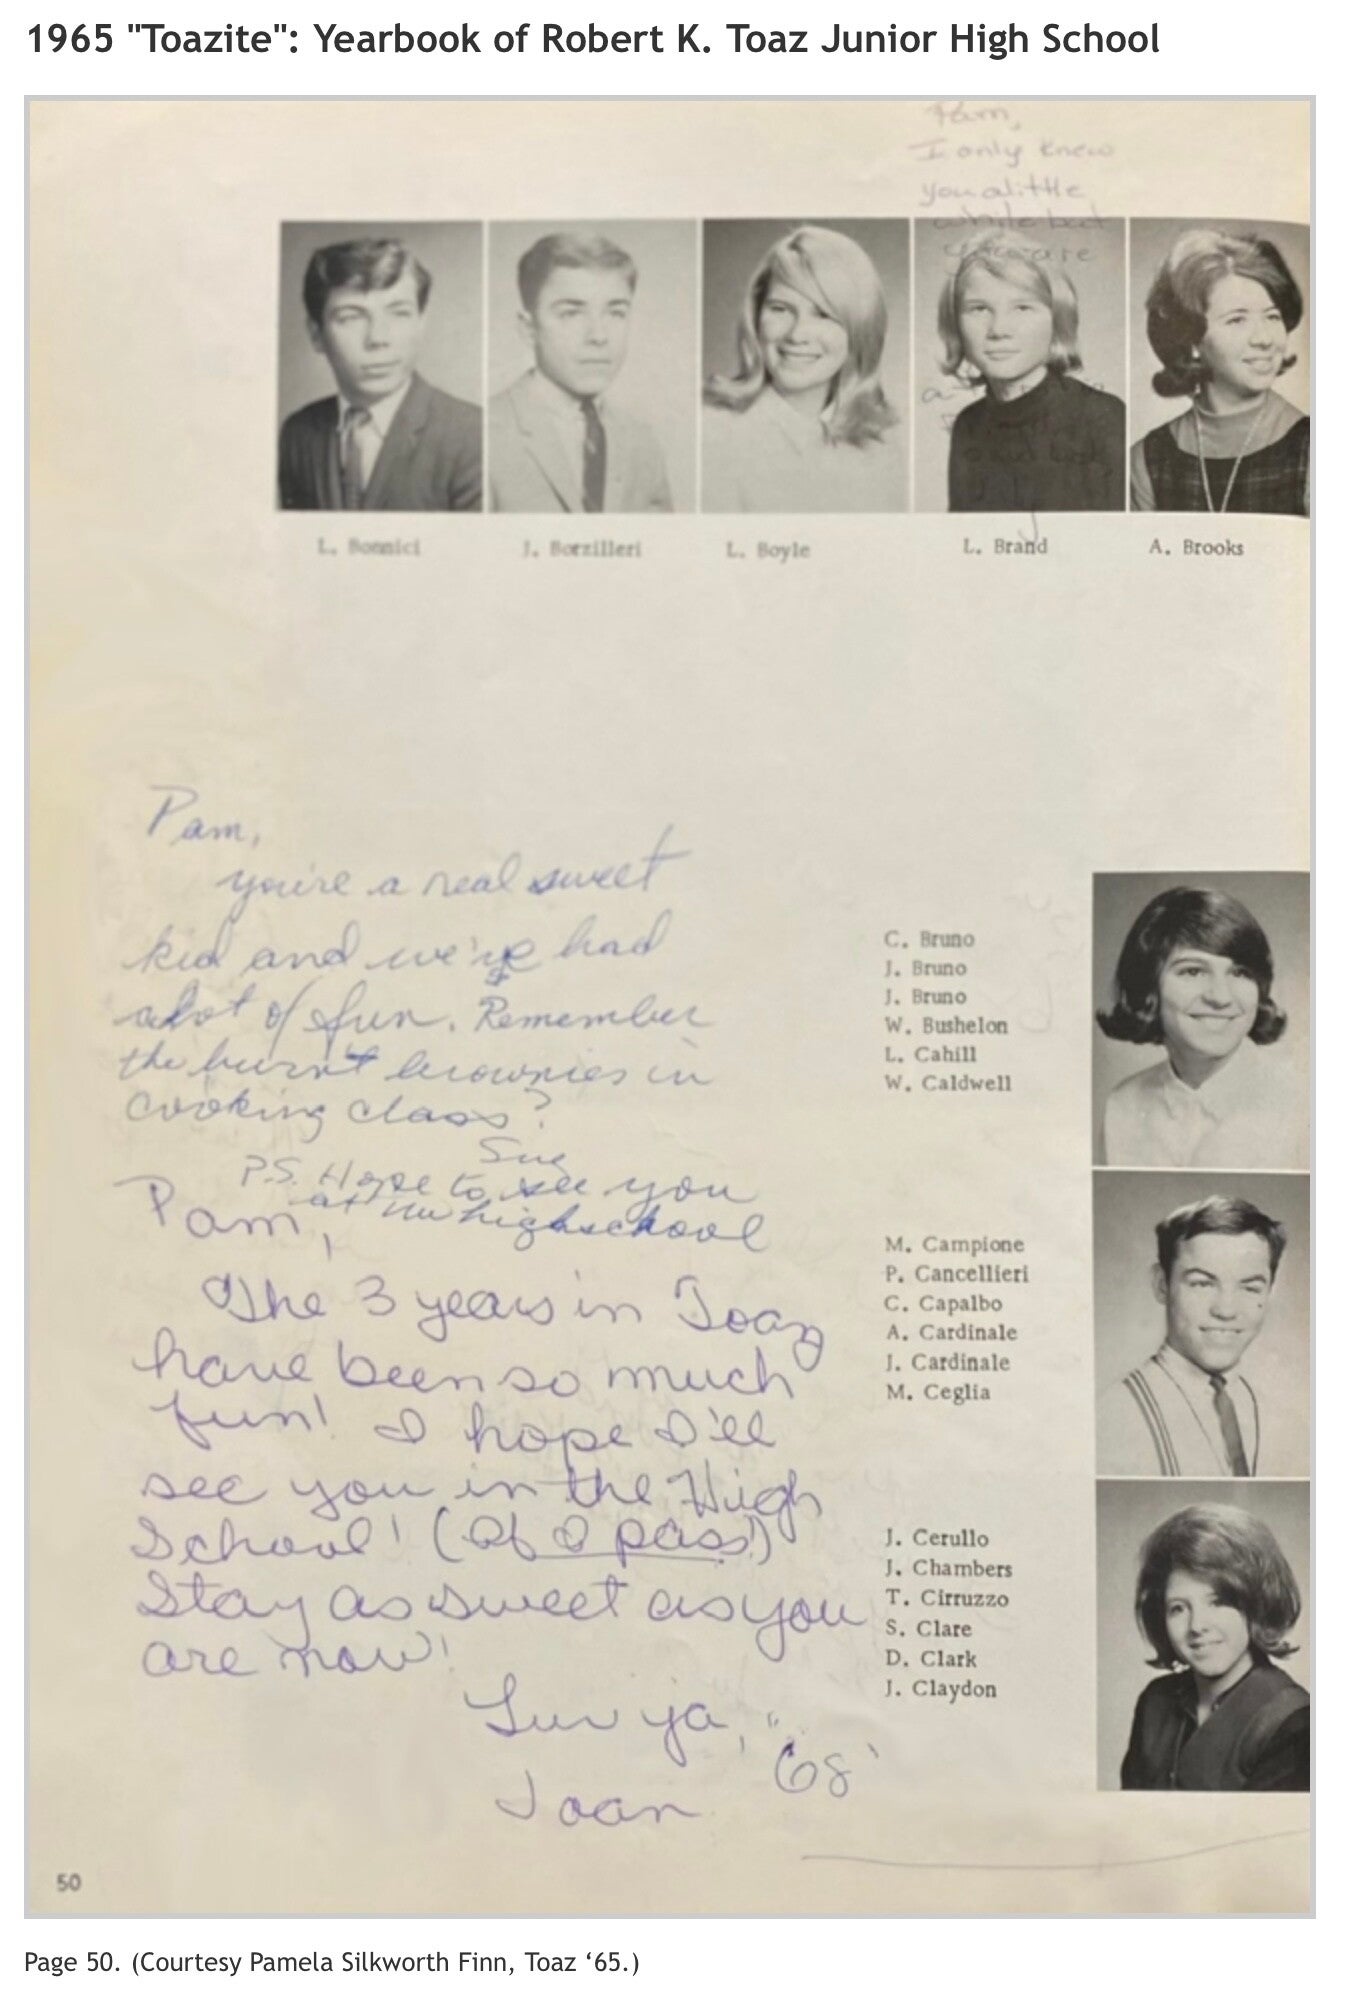 1965 "Toazite": Yearbook of Robert K. Toaz Junior High School
Pam,
I only knew
you alittle
while but
you are
L. Bonnici
J. Borzilleri
L. Boyle
L. Brand
A. Brooks
Pam,
you're a real sweet
kid and we've had
alot of fun. Remember
the burnt brownies in
cooking class?
Sue
P.S. Hope to see you
at the highschool
Pam,
The 3 years in Toaz
have been so much
fun! I hope I'll
see you in the High
School! (If I pass!)
Stay as sweet as you
are now!
Luv ya,
Joan "68"
C. Bruno
J. Bruno
J. Bruno
W. Bushelon
L. Cahill
W. Caldwell
M. Campione
P. Cancellieri
C. Capalbo
A. Cardinale
J. Cardinale
M. Ceglia
J. Cerullo
J. Chambers
T. Cirruzzo
S. Clare
D. Clark
J. Claydon
50
Page 50. (Courtesy Pamela Silkworth Finn, Toaz ‘65.)